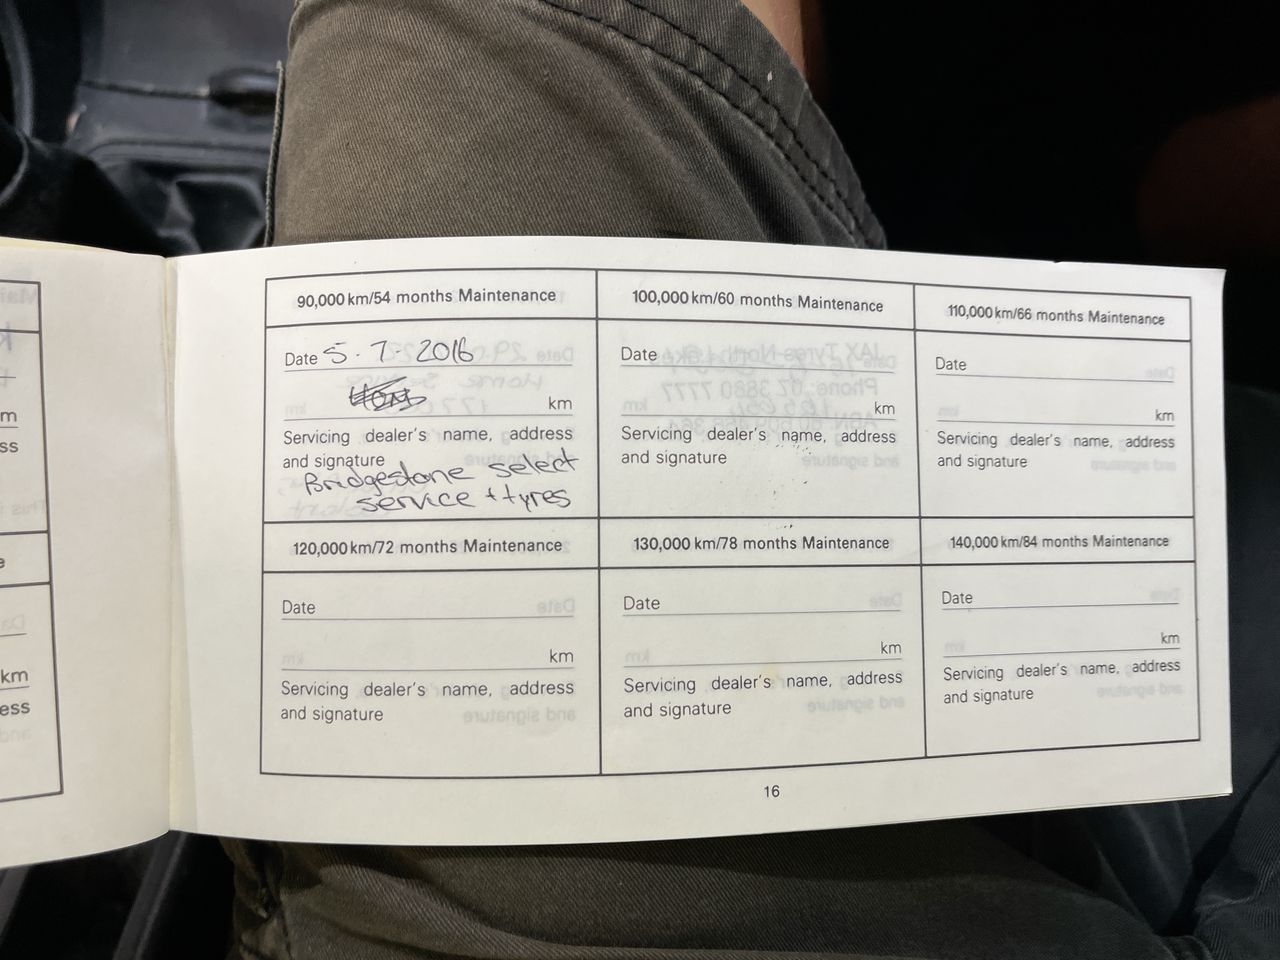 90,000 km/54 months Maintenance
Date 5.7.2016
km
Servicing dealer's name, address
and signature
Bridgestone select
service + tyres
100,000 km/60 months Maintenance
Date
km
Servicing dealer's name, address
and signature
110,000 km/66 months Maintenance
Date
km
Servicing dealer's name, address
and signature
120,000 km/72 months Maintenance
Date
km
Servicing dealer's name, address
and signature
130,000 km/78 months Maintenance
Date
km
Servicing dealer's name, address
and signature
140,000 km/84 months Maintenance
Date
km
Servicing dealer's name, address
and signature
16